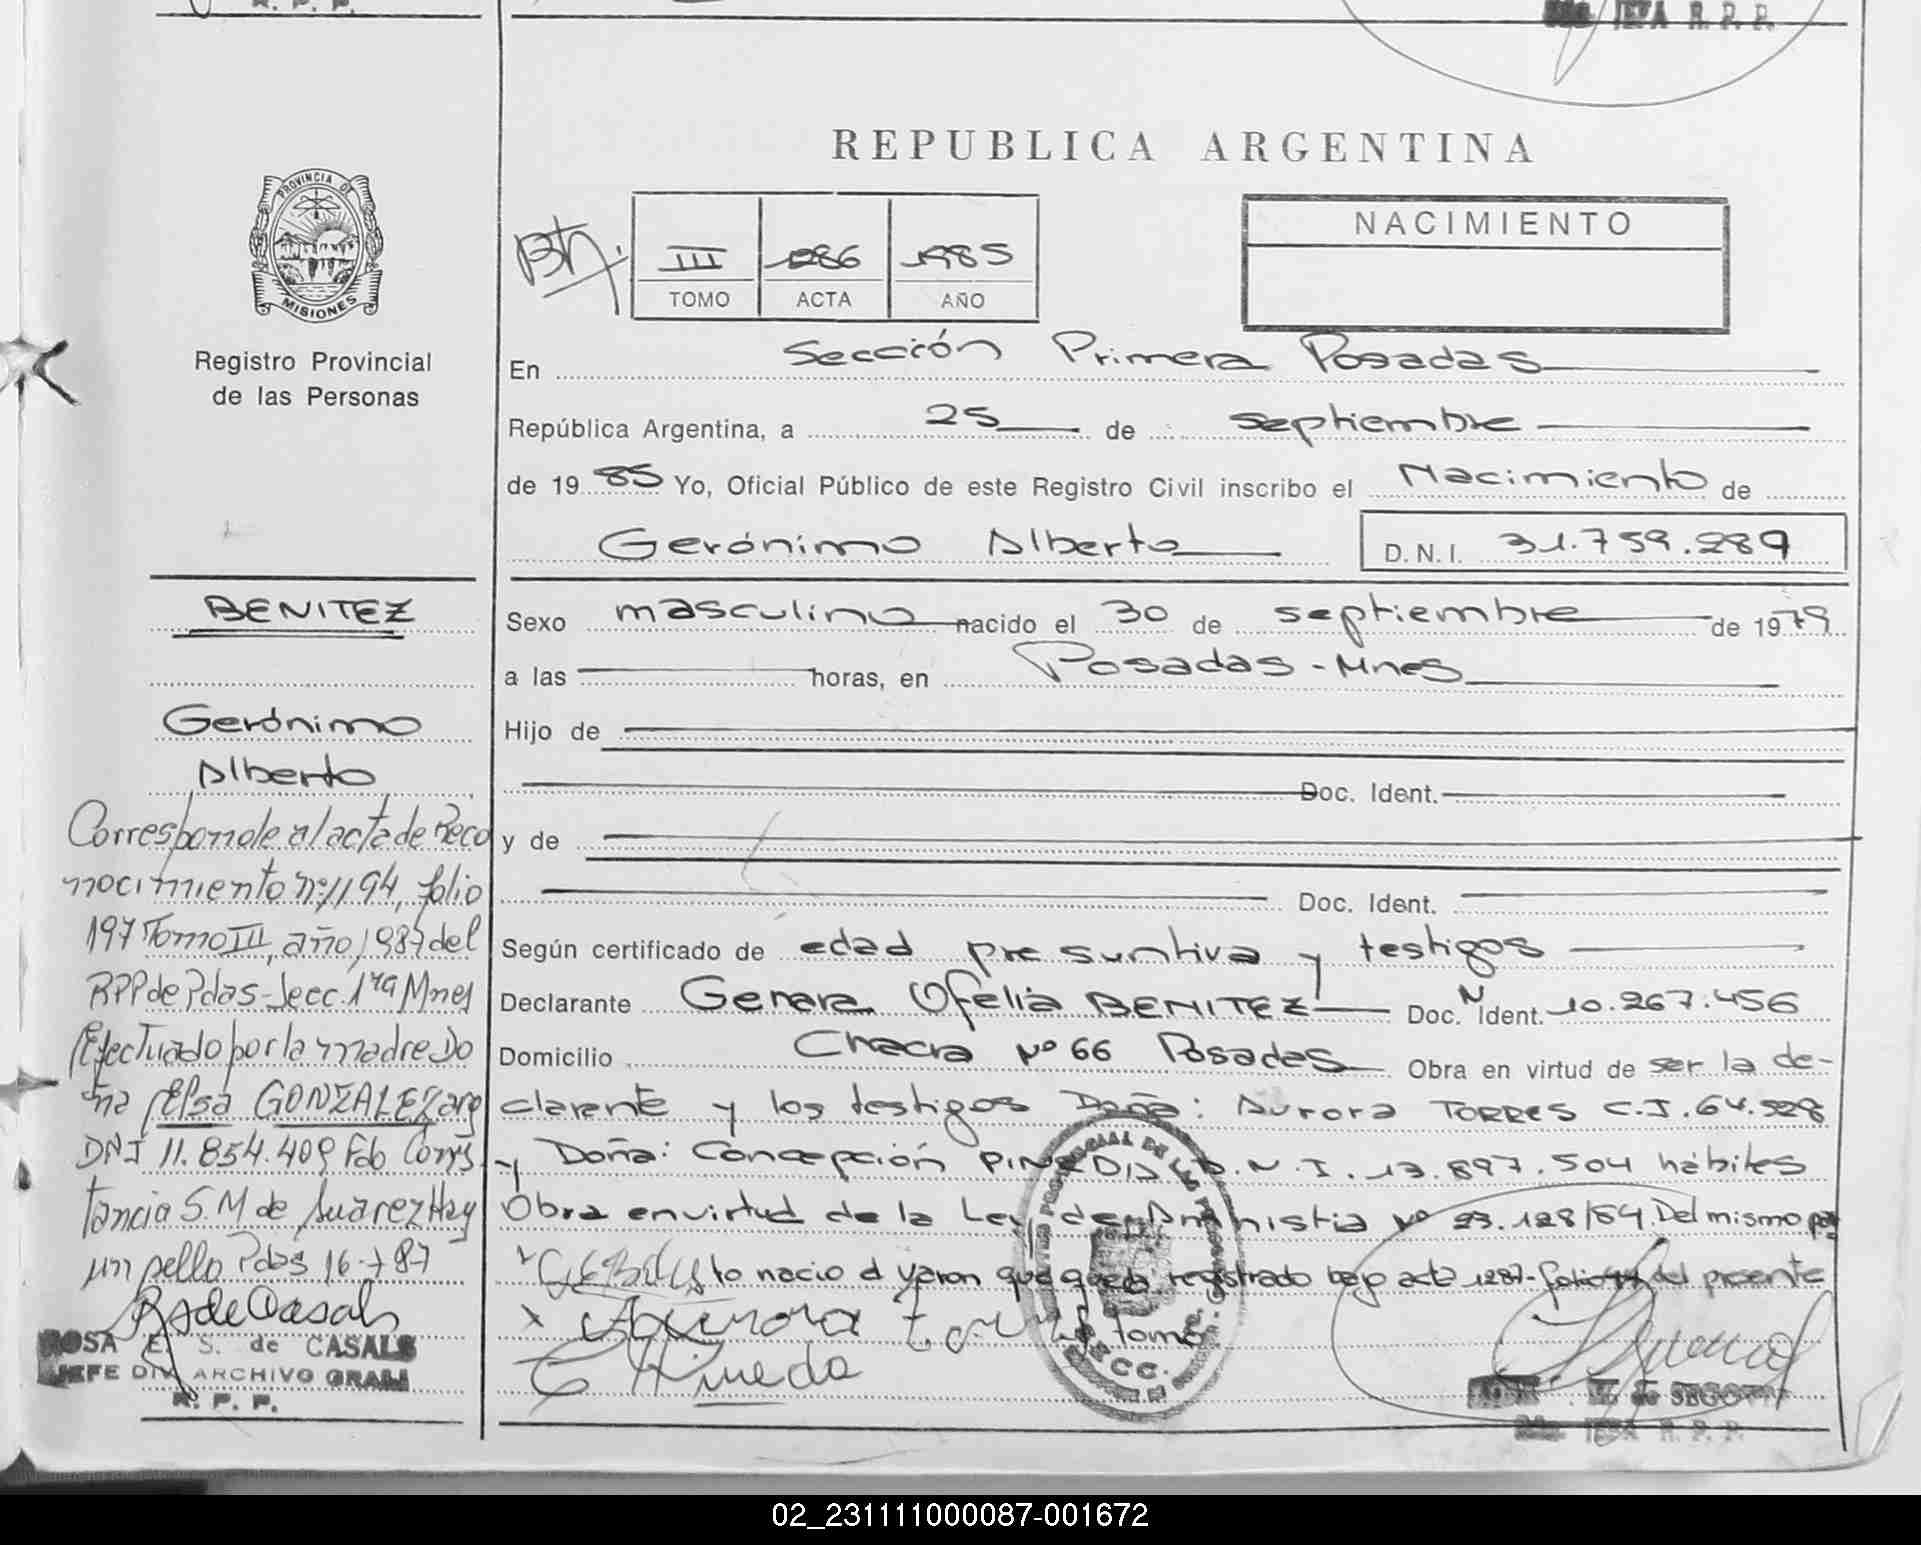 R. P. P.
JEFA R. P. P.
REPUBLICA ARGENTINA
PROVINCIA DE
MISIONES
Registro Provincial
de las Personas
III 1286 1985
TOMO ACTA AÑO
NACIMIENTO
En Sección Primera Posadas
República Argentina, a 25 de septiembre
de 1985 Yo, Oficial Público de este Registro Civil inscribo el Nacimiento de
Gerónimo Alberto D.N.I. 31.759.289
BENITEZ
Gerónimo
Alberto
Corresponde al acta de Reco
nocimiento nº 1194, folio
197 Tomo III, año 1987 del
RPP de Pdas-Secc. 1ra Mnes
Efectuado por la madre Do
ña Elsa GONZALEZ arg
DNI 11.854.409 Fdo Cons
tancia S.M de Suarez Hay
un sello Pdas 16-7-87
ROSA E. S. de CASALS
JEFE DIV. ARCHIVO GRAL
R. P. P.
Sexo masculino nacido el 30 de septiembre de 1979
a las horas, en Posadas - Mnes
Hijo de
Doc. Ident.
y de
Doc. Ident.
Según certificado de edad presuntiva y testigos
Declarante Genara Ofelia BENITEZ Doc. N Ident. 10.267.456
Domicilio Chacra Nº 66 Posadas Obra en virtud de ser la de-
clarante y los testigos Doña: Aurora TORRES C.I. 64.528
y Doña: Concepción PINEDA D.N.I. 13.897.504 hábiles
Obra en virtud de la Ley de Amnistia Nº 23.128/84. Del mismo par
to nacio el varon que queda registrado bajo acta 1287- folio del presente
tomo
Aurora
Pineda
de SEGOV
JEFA R. P. P.
02_231111000087-001672